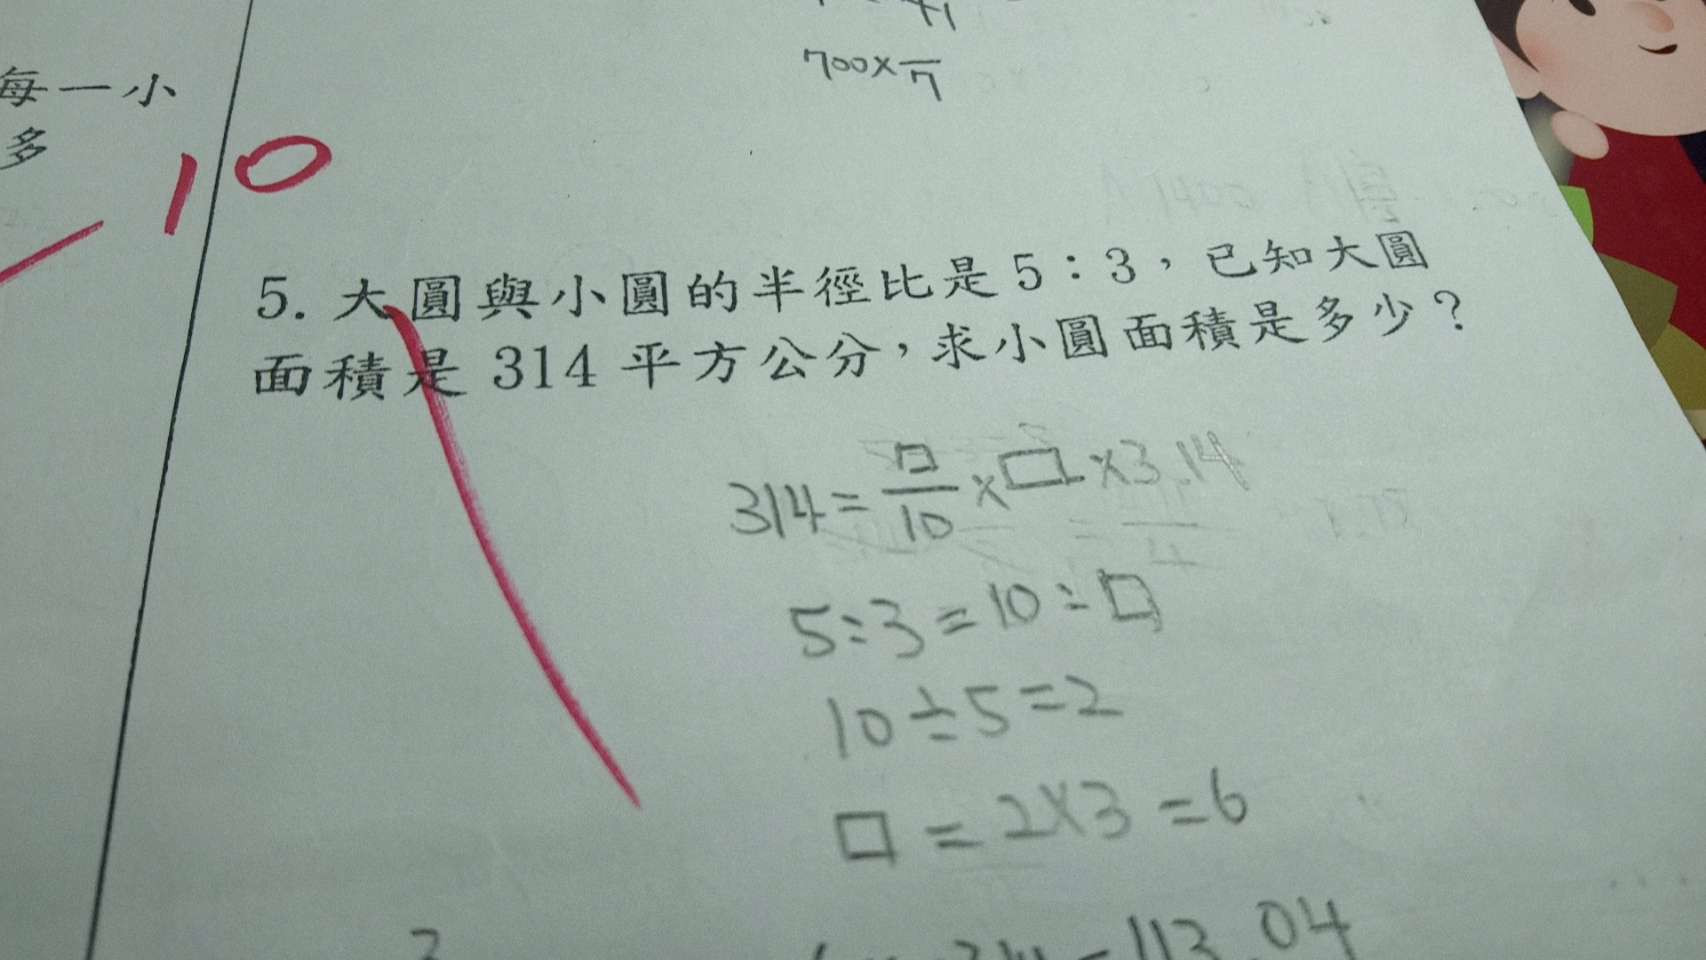 每一小
多
10
700×
5. 大圓與小圓的半徑比是 5：3，已知大圓
面積是 314 平方公分，求小圓面積是多少？
314=□/10×□×3.14
5:3=10÷□
10÷5=2
□=2×3=6
113.04